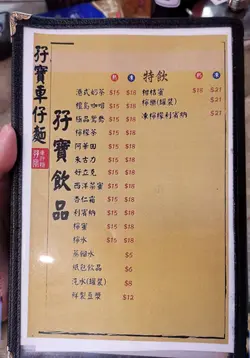 孖寶車仔麵
孖寶飲品
熱 凍
港式奶茶 $15 $18
極品鴛鴦 $15 $18
檸檬茶 $15 $18
阿華田 $15 $18
朱古力 $15 $18
好立克 $15 $18
西洋菜蜜 $15 $18
杏仁霜 $15 $18
利賓納 $15 $18
檸蜜 $15 $18
檸水 $15 $18
蒸餾水 $6
紙包飲品 $6
汽水(罐裝) $8
鮮製豆漿 $12
特飲
熱 凍
柑桔蜜 $18 $21
檸樂(罐裝) $21
凍檸檬利賓納 $21